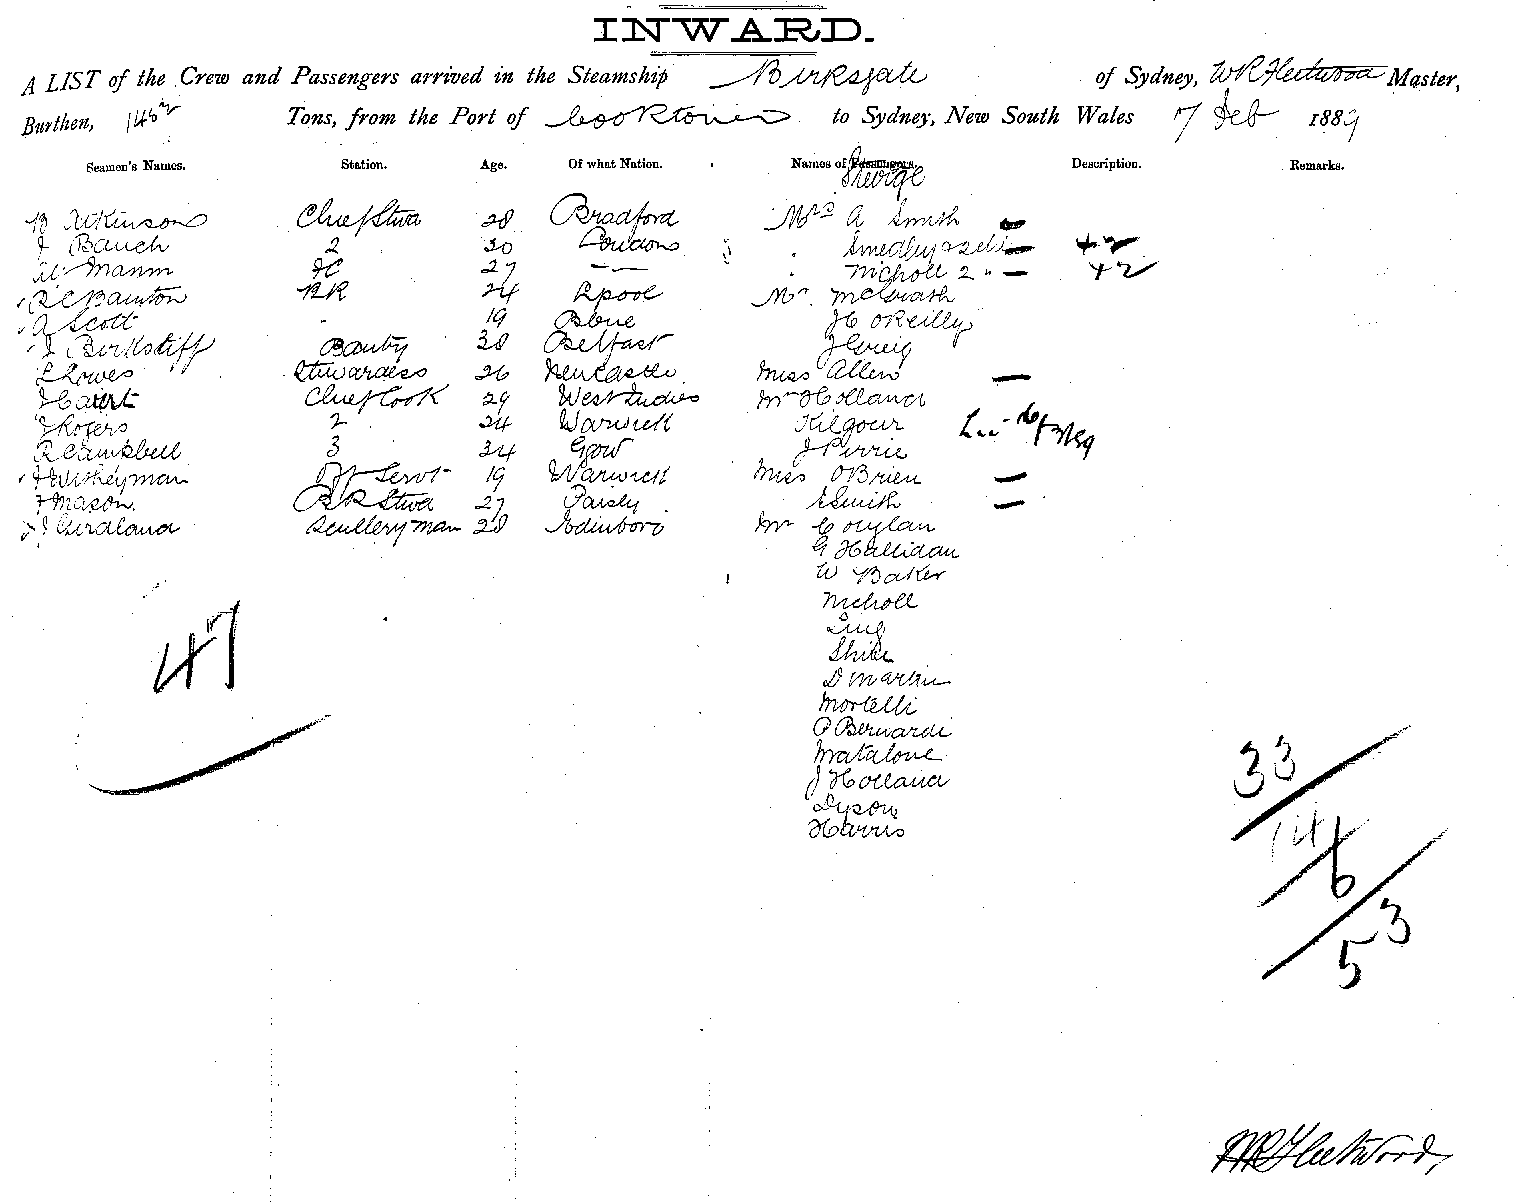 INWARD.
A LIST of the Crew and Passengers arrived in the Steamship Birksgate of Sydney, WR Fleetwood Master,
Burthen, Tons, from the Port of Cooktown to Sydney, New South Wales 7 Feb 1889
Seamen's Names. Station. Age. Of what Nation. Names of Passengers. Description. Remarks.
George
Atkinson Chief Stwd 28 Bradford Mrs A Smith
J Bauch 2 30 London Smedley
Mann 27 Nicholl 2
Bainton 24 Lpool Mr McGrath
A Scott 19 J C OReilly
38 Belfast J Greig
Lowes Stewardess 26 Newcastle Miss Allen
Chief Cook 29 West Indies Mr Holland
J Rogers 2 24 Warwick Kilgour
R Campbell 3 34 Gow J Pirrie
19 Warwick Miss OBrien
F Mason 27 Paisly E Smith
Scullery man 28 Edinboro Mr Coughlan
G Hallidan
W Baker
Nicholl
D Martin
Mortelli
P Bernardi
Matalone
J Holland
Dyson
Harris
47
33
14
6
53
WR Fleetwood